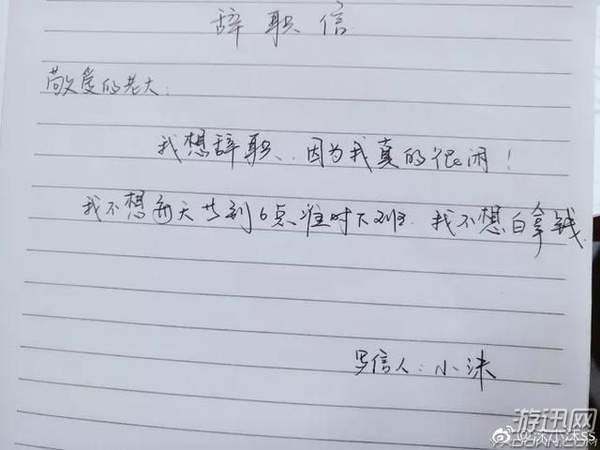 辞职信
敬爱的老大：
我想辞职、因为我真的很闲！
我不想每天艹到6点准时下班.我不想白拿钱.
写信人：小沫
游讯网